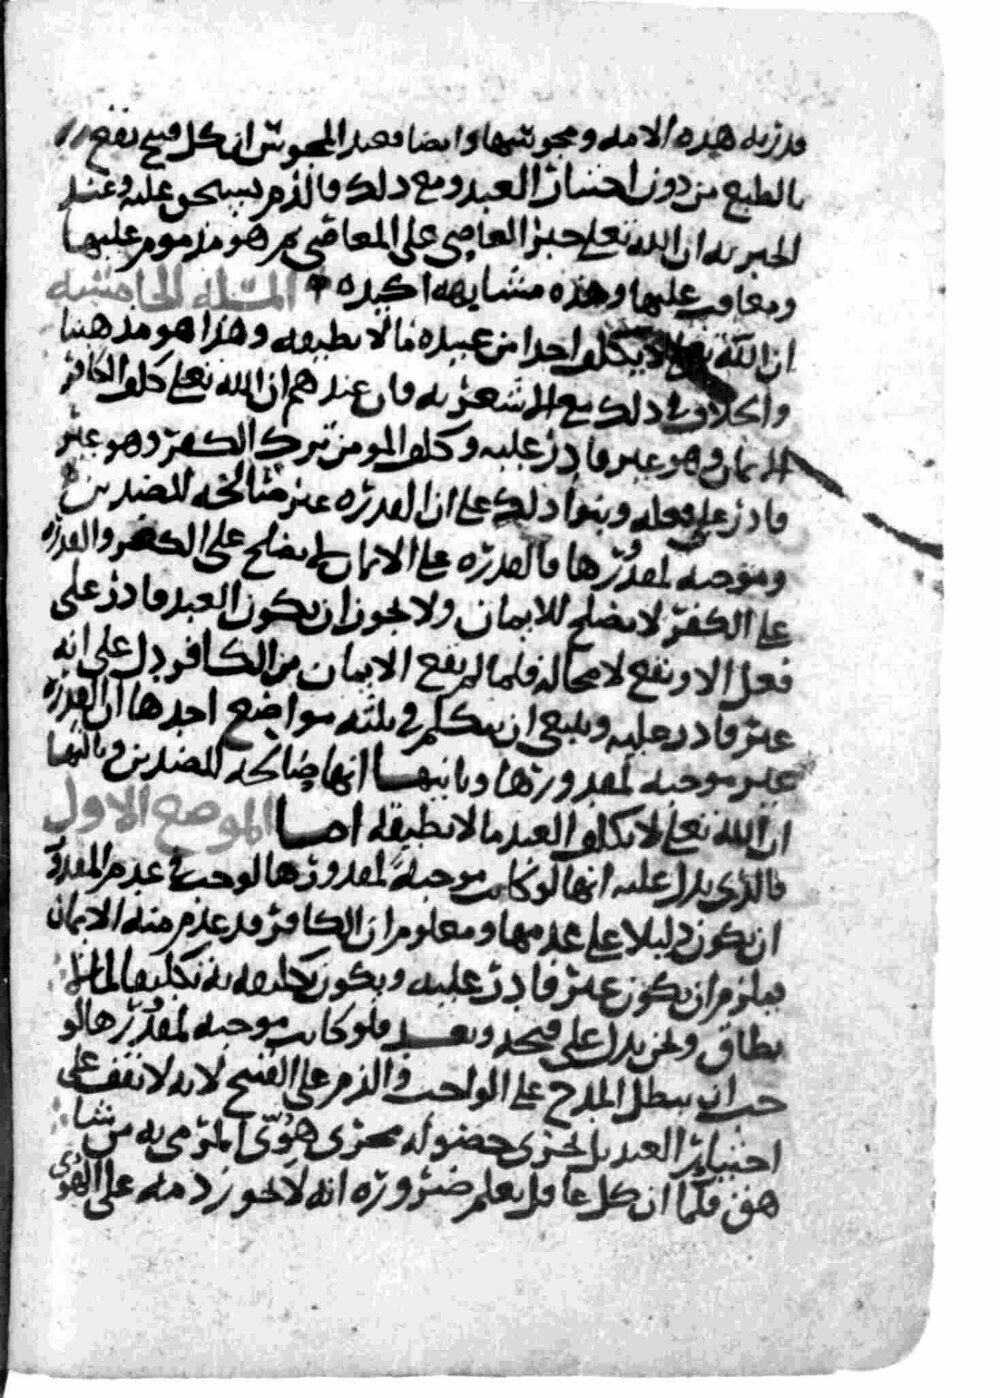 قدرية هذه الامه ومجوسها وايضا فعند المجوس ان كل قبيح يقع
بالطبع من دون اختيار العبد ومع ذلك فالذم يستحق عليه وعند
الجبريه ان الله تعلى جبر العاصي على المعاصي ثم هو مذموم عليها
ومعاقب عليها وهذه مشابهه اكيده المسئلة الخامسه
ان الله تعلى لا يكلف احدا من عبيده مالا يطيقه وهذا هو مذهبنا
والخلاف في ذلك مع الاشعريه فان عندهم ان الله تعلى كلف الكافر
الايمان وهو غير قادر عليه وكلف المومن ترك الكفر وهو غير
قادر على فعله وبنوا ذلك على ان القدره غير صالحه للضدين
وموجبه لمقدورها فالقدره على الايمان لا يصلح على الكفر والقدره
على الكفر لا يصلح للايمان ولا يجوز ان يكون العبد قادر على
فعل الا ويقع لا محاله فلما لم يقع الايمان من الكافر دل على انه
غير قادر عليه وينبغي ان نتكلم في ثلثه مواضع احدها ان القدره
غير موجبه لمقدورها وثانيها انها صالحه للضدين وثالثها
ان الله تعلى لا يكلف العبد مالا يطيقه اما الموضع الاول
فالذي يدل عليه انها لو كانت موجبة لمقدورها لوجب في عدم المقدور
ان يكون دليلا على عدمها ومعلوم ان الكافر قد عدم منه الايمان
فيلزم ان يكون غير قادر عليه ويكون تكليفه به تكليفا لما لا
يطاق ونحن ندل على قبحه وبعد فلو كانت موجبه لمقدورها لو
جب ان يبطل المدح على الواجب والذم على القبيح لانه لا يقف على
اختيار العبد بل يجري حصوله مجرى هوي المرمي به من شا
هق فكما ان كل عاقل يعلم ضروره انه لا يجوز ذمه على الهوي